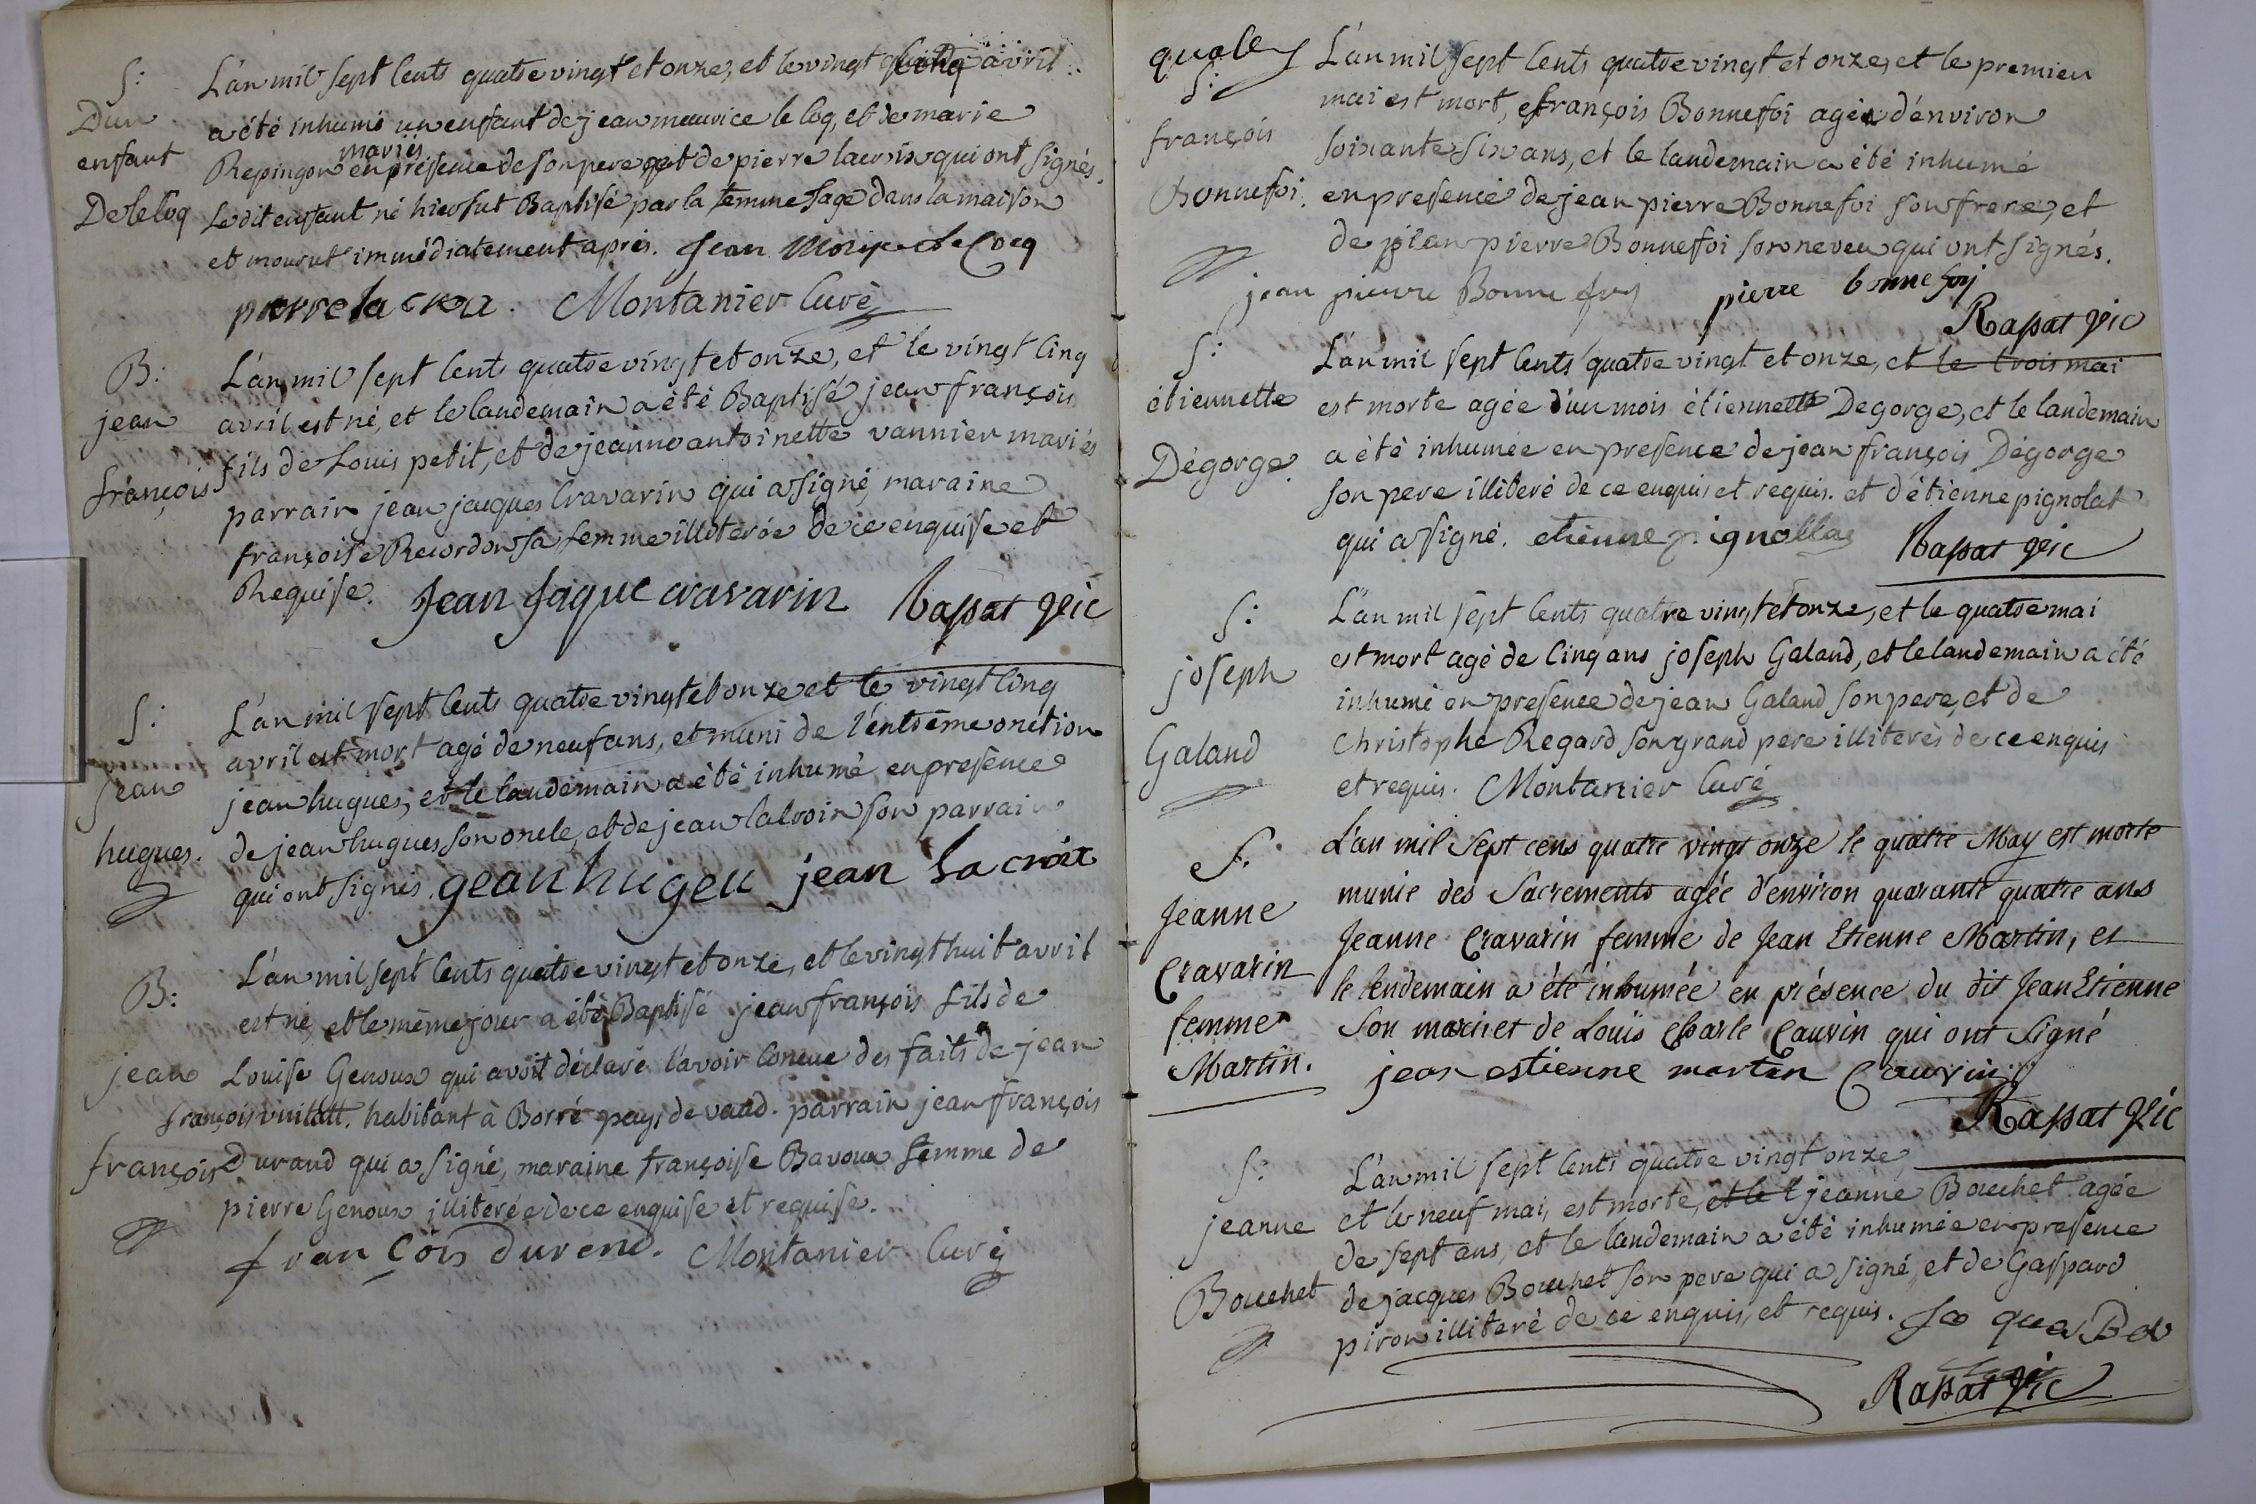 S:
Dun
enfant
De le Coq
L'an mil sept cents quatre vingt et onze, et le vingt cinq avril
a été inhumé un enfant de jean maurice le coq, et de marie
mariés
Repingon en présence de son pere et de pierre lacroix qui ont signés.
Ledit enfant né hier fut Baptisé par la femme sage dans la maison
et mourut immédiatement après. Jean Morise le Cocq
pierre la croa. Montanier Curé
B:
jean
françois
L'an mil sept cents quatre vingt et onze, et le vingt cinq
avril est né, et le landemain a été Baptisé jean françois
fils de Louis petit, et de jeanne antoinette vannier mariés
parrain jean jacques Cravarin qui a signé, maraine
françoise Recordon sa femme illiterée de ce enquise et
Requise. Jean Jaque cravarin Rassat vic
S:
jean
hugues.
L'an mil sept cents quatre vingt et onze et le vingt cinq
avril est mort agé de neuf ans, et muni de l'entrême onction
jean hugues, et le landemain a été inhumé en presence
de jean hugues son oncle, et de jean lacroix son parrain
qui ont signés. gean hugeu jean la croix
B:
jean
françois
L'an mil sept cents quatre vingt et onze, et le vingt huit avril
est né, et le même jour a été Baptisé jean françois fils de
Louise Genoux qui avoit déclaré l'avoir concue des faits de jean
françois vuitatt. habitant à Borré pays de vaad. parrain jean françois
Durand qui a signé, maraine françoise Bavoux femme de
pierre Genoux illiterée de ce enquise et requise.
fran çois durend. Montanier Curé
S:
françois
Bonnefoi.
L'an mil sept cents quatre vingt et onze, et le premier
mai est mort, françois Bonnefoi agé d'environ
soixante six ans, et le landemain a été inhumé
en presence de jean pierre Bonnefoi son frere, et
de jean pierre Bonnefoi son neveu qui ont signés.
jean pierre Bonne foy pierre bonnefoy
Rassat vic
S:
étiennette
Dégorge.
L'an mil sept cents quatre vingt et onze, et le trois mai
est morte agée d'un mois étiennette Degorge, et le landemain
a été inhumée en presence de jean françois Dégorge
son pere illiteré de ce enquis et requis. et d'étienne pignolat
qui a signé. etienne pignollas Rassat vic
S:
joseph
Galand
L'an mil sept cents quatre vingt et onze, et le quatre mai
est mort agé de cinq ans joseph Galand, et le landemain a été
inhumé en presence de jean Galand son pere, et de
christophe Regard son grand pere illiterès de ce enquis
et requis. Montanier Curé
S.
Jeanne
Cravarin
femme
Martin.
L'an mil sept cens quatre vingt onze le quatre May est morte
munie des Sacrements agée d'environ quarante quatre ans
Jeanne Cravarin femme de Jean Etienne Martin, et
le lendemain a été inhumée en présence du dit Jean Etienne
son mari et de Louis Charle Cauvin qui ont signé
jean estienne martin Cauvin
Rassat vic
S:
jeanne
Bouchet
L'an mil sept cents quatre vingt onze,
et le neuf mai, est morte, et le l jeanne Bouchet agée
de sept ans, et le landemain a été inhumée en presence
de jacques Bouchet son pere qui a signé, et de Gaspard
piron illiteré de ce enquis, et requis.
Rassat vic